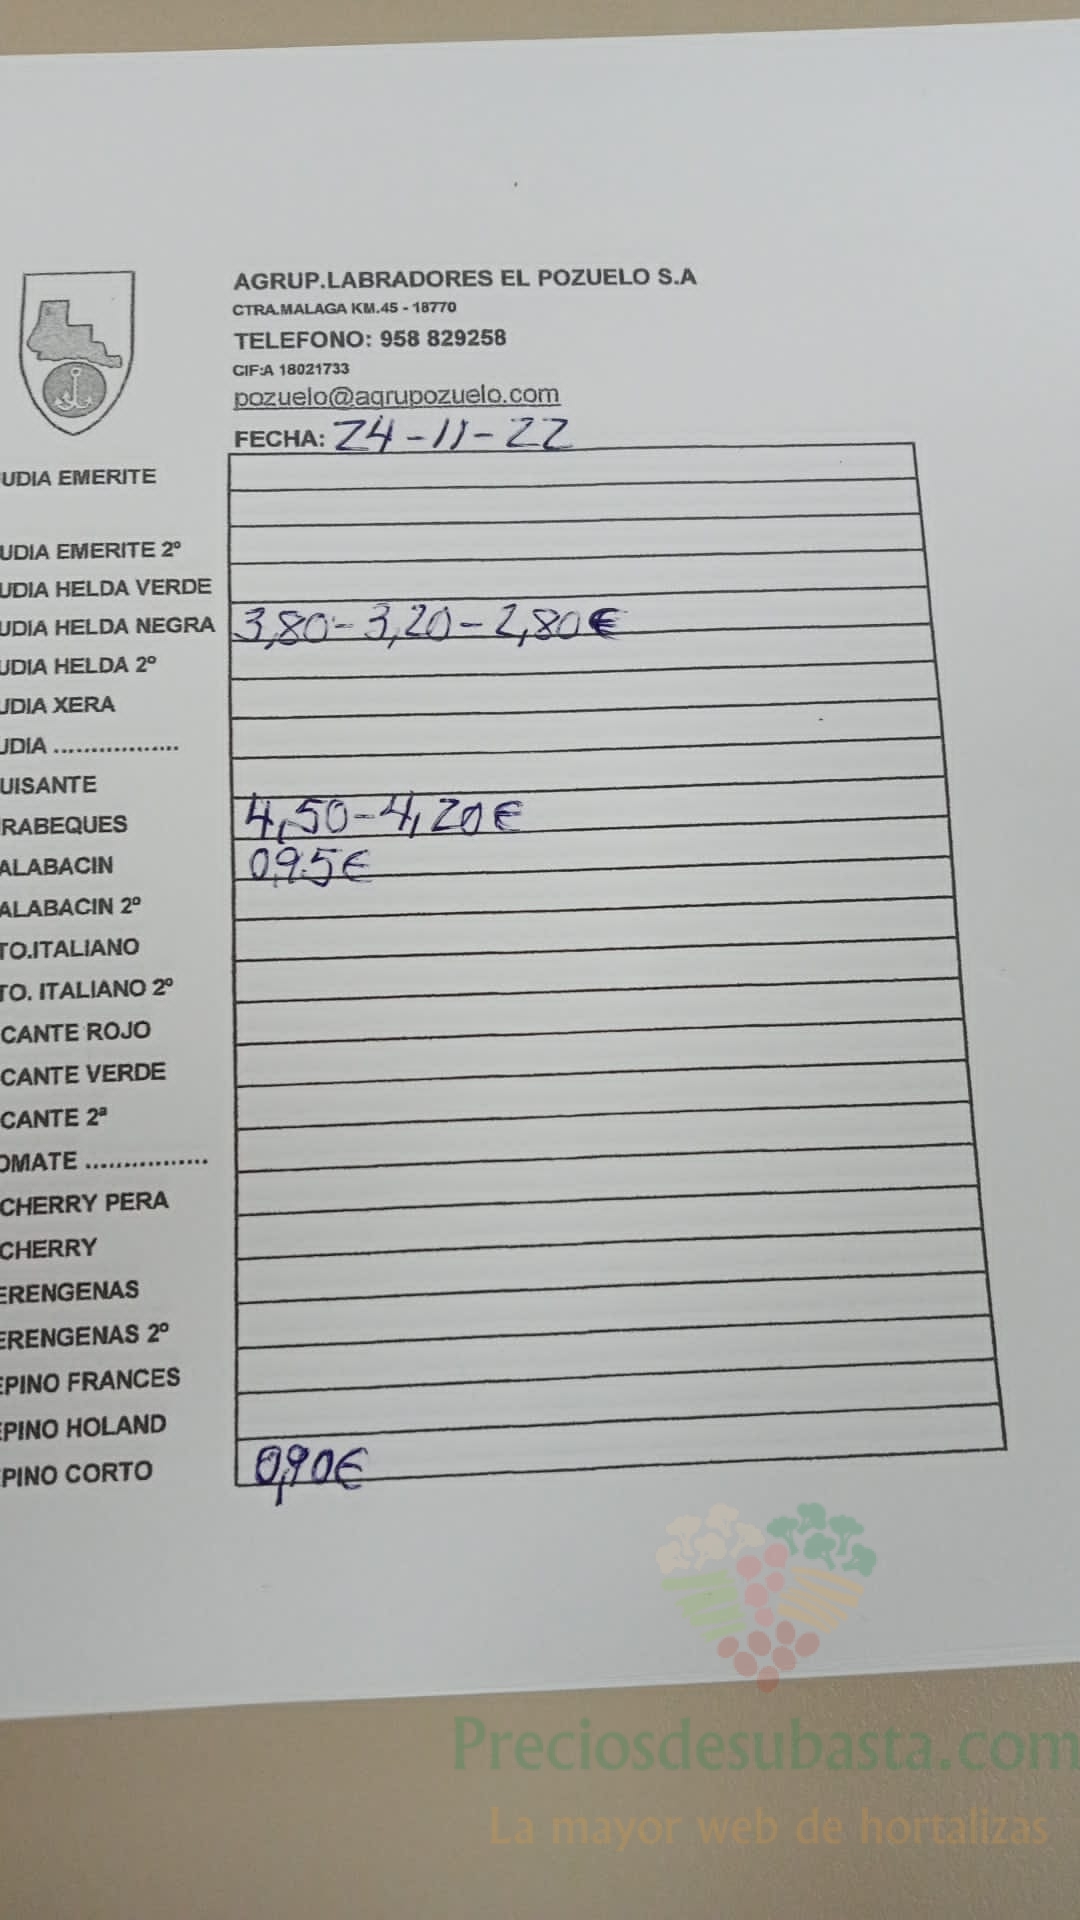 AGRUP.LABRADORES EL POZUELO S.A
CTRA.MALAGA KM.45 - 18770
TELEFONO: 958 829258
CIF:A 18021733
pozuelo@agrupozuelo.com
FECHA: 24-11-22
UDIA EMERITE
UDIA EMERITE 2º
UDIA HELDA VERDE
UDIA HELDA NEGRA 3,80-3,20-2,80€
UDIA HELDA 2º
UDIA XERA
UDIA .................
UISANTE
RABEQUES 4,50-4,20€
ALABACIN 0,95€
ALABACIN 2º
TO.ITALIANO
TO. ITALIANO 2º
CANTE ROJO
CANTE VERDE
CANTE 2ª
OMATE ................
CHERRY PERA
CHERRY
ERENGENAS
ERENGENAS 2º
EPINO FRANCES
EPINO HOLAND
PINO CORTO 0,90€
Preciosdesubasta.com
La mayor web de hortalizas